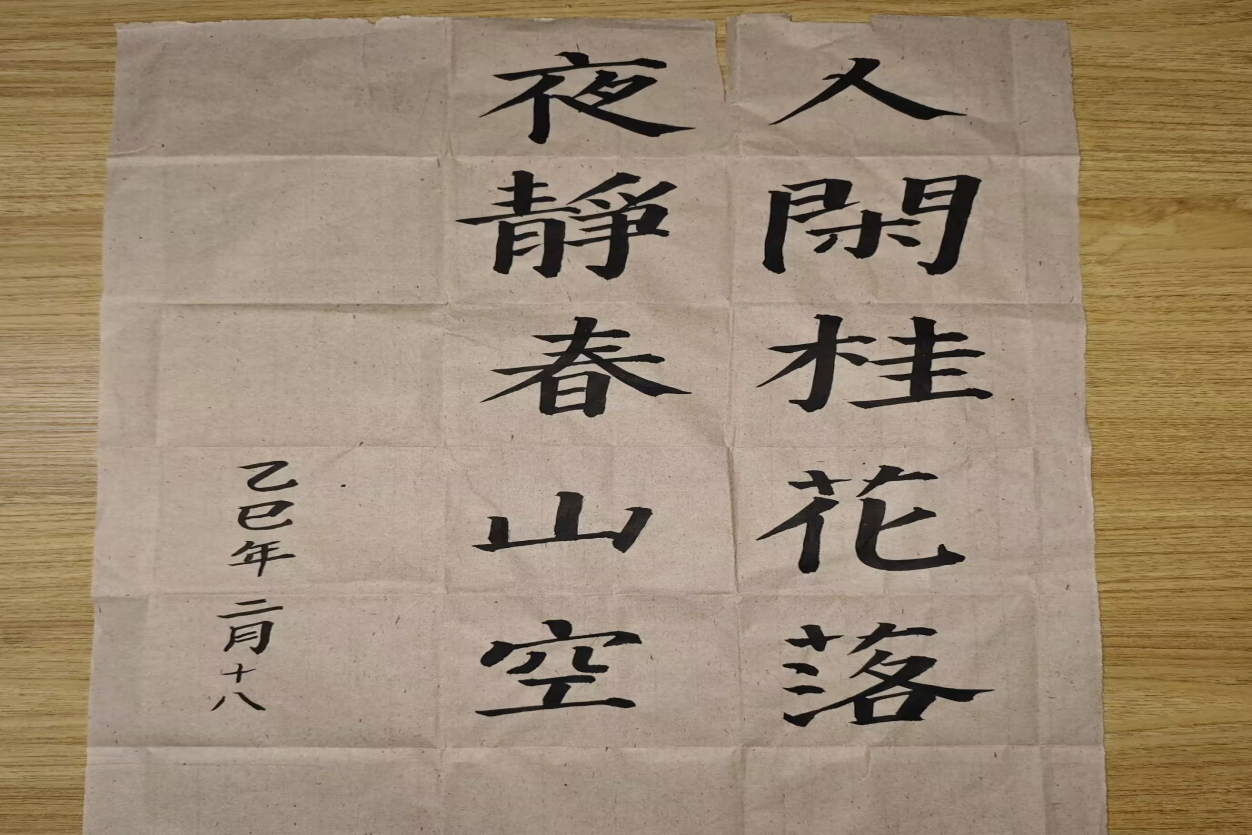 人閑桂花落
夜靜春山空
乙巳年二月十八